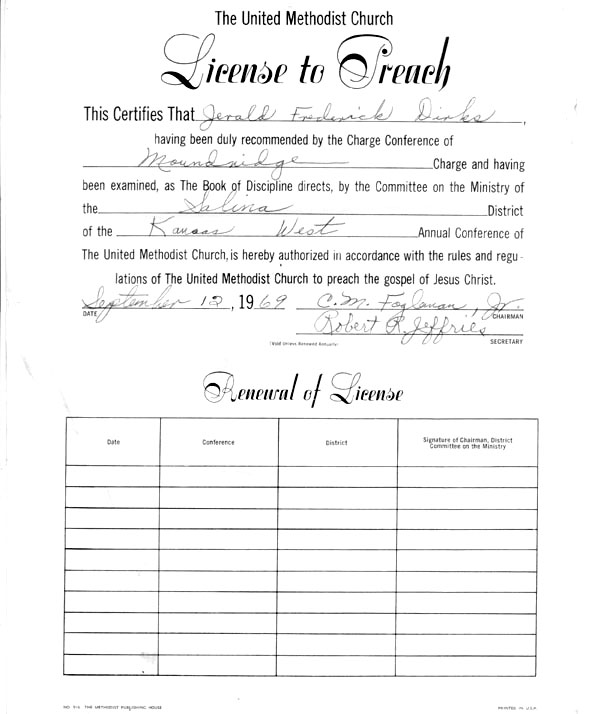 The United Methodist Church
License to Preach
This Certifies That Jerald Frederick Dirks,
having been duly recommended by the Charge Conference of
Moundridge Charge and having
been examined, as The Book of Discipline directs, by the Committee on the Ministry of
the Salina District
of the Kansas West Annual Conference of
The United Methodist Church, is hereby authorized in accordance with the rules and regu-
lations of The United Methodist Church to preach the gospel of Jesus Christ.
September 12, 1969 C.M. , Jr.
DATE CHAIRMAN
Robert R. Jeffries
SECRETARY
(Void Unless Renewed Annually)
Renewal of License
Date Conference District Signature of Chairman, District
Committee on the Ministry
THE METHODIST PUBLISHING HOUSE PRINTED IN U.S.A.